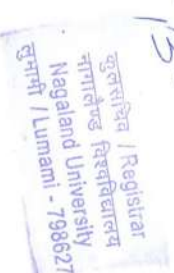 13
कुलसचिव / Registrar
नागालैण्ड विश्वविद्यालय
Nagaland University
लुमामी / Lumami - 798627